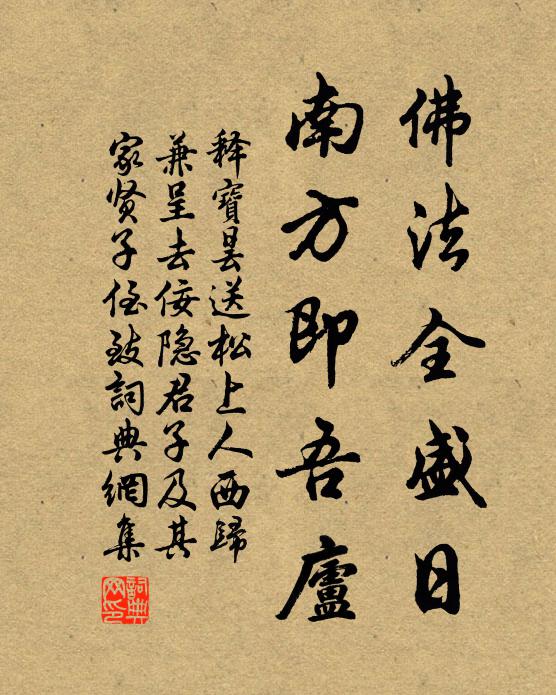 佛法全盛日
南方即吾廬
释寶曇送松上人西歸
兼呈去佞隐君子及其
家贤子侄致詞典網集
詞典
网印